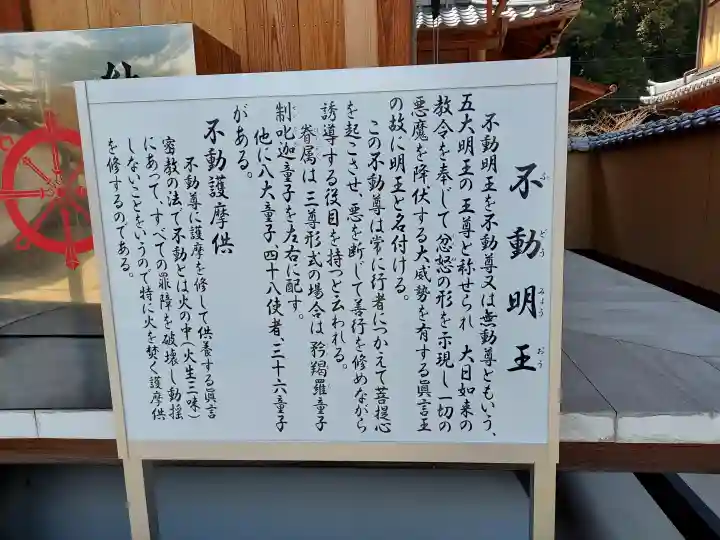 不動明王
ふ どう みょう おう
不動明王を不動尊又は無動尊ともいう、
五大明王の王尊と称せられ 大日如来の
教令を奉じて忿怒の形を示現し一切の
悪魔を降伏する大威勢を有する眞言王
の故に明王と名付ける。
この不動尊は常に行者につかえて菩提心
を起こさせ、悪を断じて善行を修めながら
誘導する役目を持つと云われる。
眷属は三尊形式の場合は矜羯羅童子
制叱迦童子を左右に配す。
他に八大童子、四十八使者、三十六童子
がある。
不動護摩供
不動尊に護摩を修して供養する眞言
密教の法で不動とは火の中(火生三昧)
にあって、すべての罪障を破壊し動揺
しないことをいうので特に火を焚く護摩供
を修するのである。